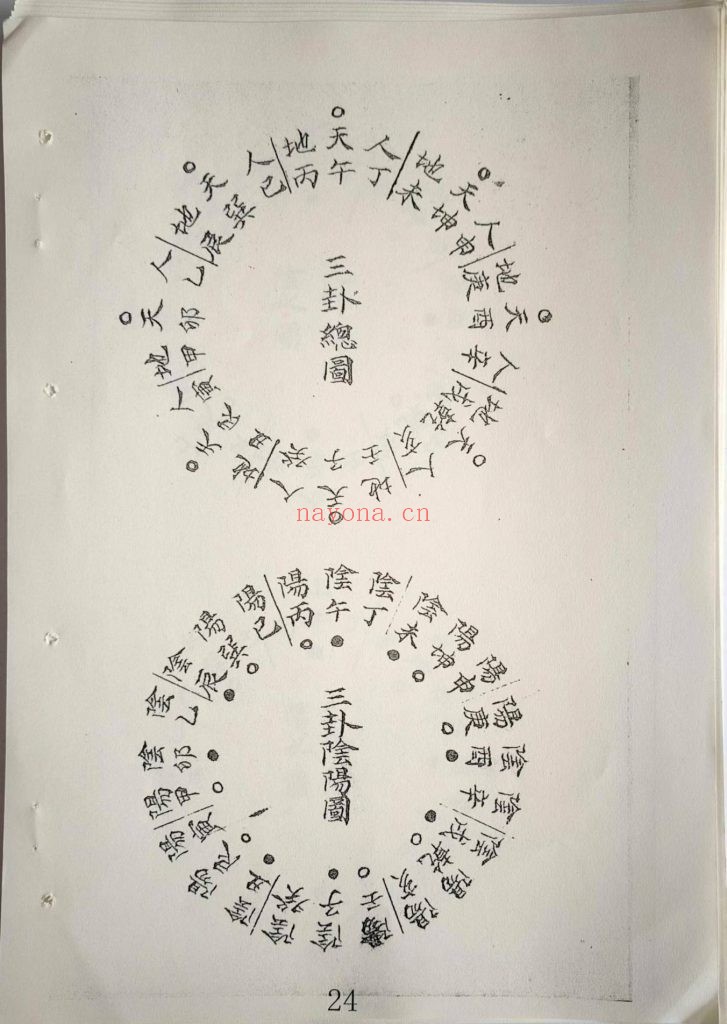 三卦總圖
地天人
丙午丁
地天人
未坤申
地天人
庚酉辛
地天人
戌乾亥
地天人
壬子癸
地天人
丑艮寅
地天人
甲卯乙
地天人
辰巽巳
nayona.cn
三卦陰陽圖
陽陰陰
丙午丁
陰陽陽
未坤申
陽陰陰
庚酉辛
陰陽陽
戌乾亥
陽陰陰
壬子癸
陰陽陽
丑艮寅
陽陰陰
甲卯乙
陰陽陽
辰巽巳
24